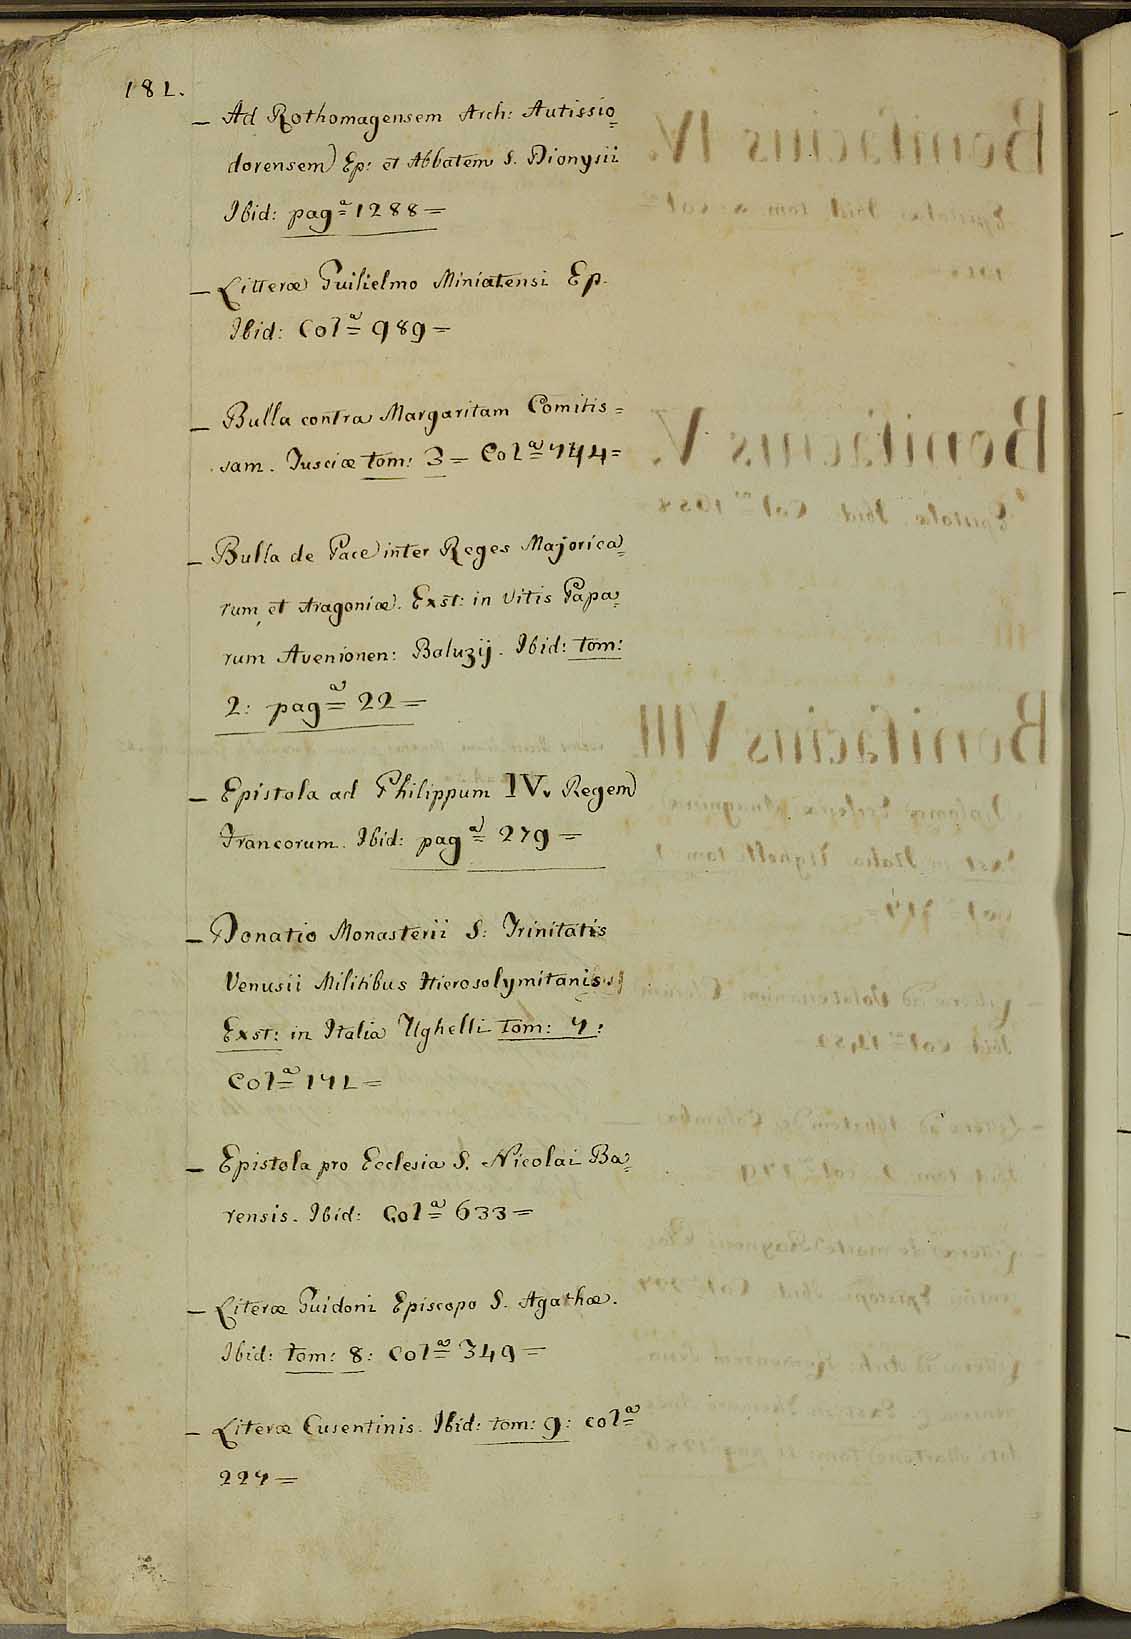 182.
– Ad Rothomagensem Arch: Autissio=
dorensem Ep: et Abbatem S. Dionysii
Ibid: pagª= 1288=
– Litteræ Guilielmo Miniatensi Ep.
Ibid: Colª= 989=
– Bulla contra Margaritam Comitis=
sam. Tusciæ tom: 3= Colª= 744=
– Bulla de Pace inter Reges Majorica=
rum, et Aragoniæ. Exst: in Vitis Papa=
rum Avenionen: Baluzij. Ibid: tom:
2: pagª= 22=
– Epistola ad Philippum IV. Regem
Francorum. Ibid: pagª= 279=
– Donatio Monasterii S: Trinitatis
Venusii Militibus Hierosolymitanis
Exst: in Italia Ughelli tom: 7:
Colª= 172=
– Epistola pro Ecclesia S. Nicolai Ba=
rensis. Ibid: Colª= 633=
– Literæ Guidoni Episcopo S. Agathæ.
Ibid: tom: 8: Colª= 349=
– Literæ Cusentinis. Ibid: tom: 9: colª=
227=